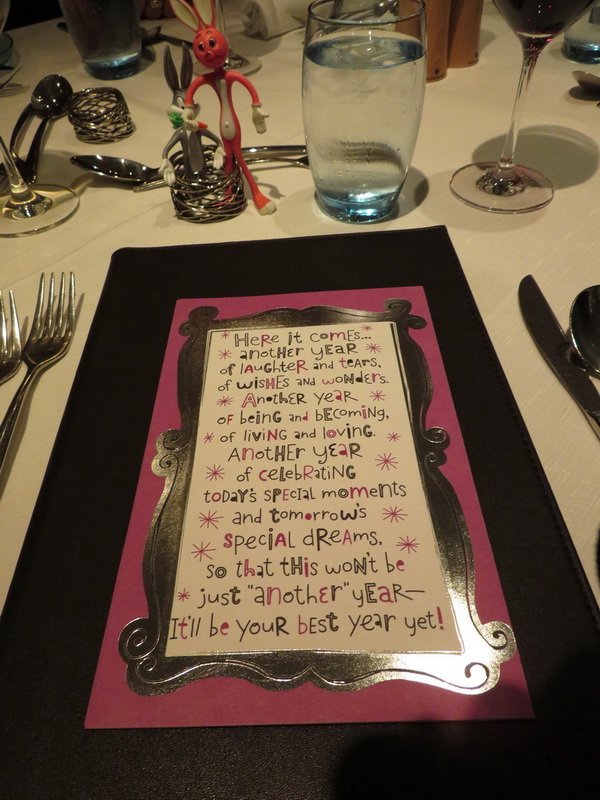 Here it comes...
another year
of laughter and tears,
of wishes and wonders.
Another year
of being and becoming,
of living and loving.
Another year
of celebrating
today's special moments
and tomorrow's
special dreams,
so that this won't be
just "another" year—
It'll be your best year yet!